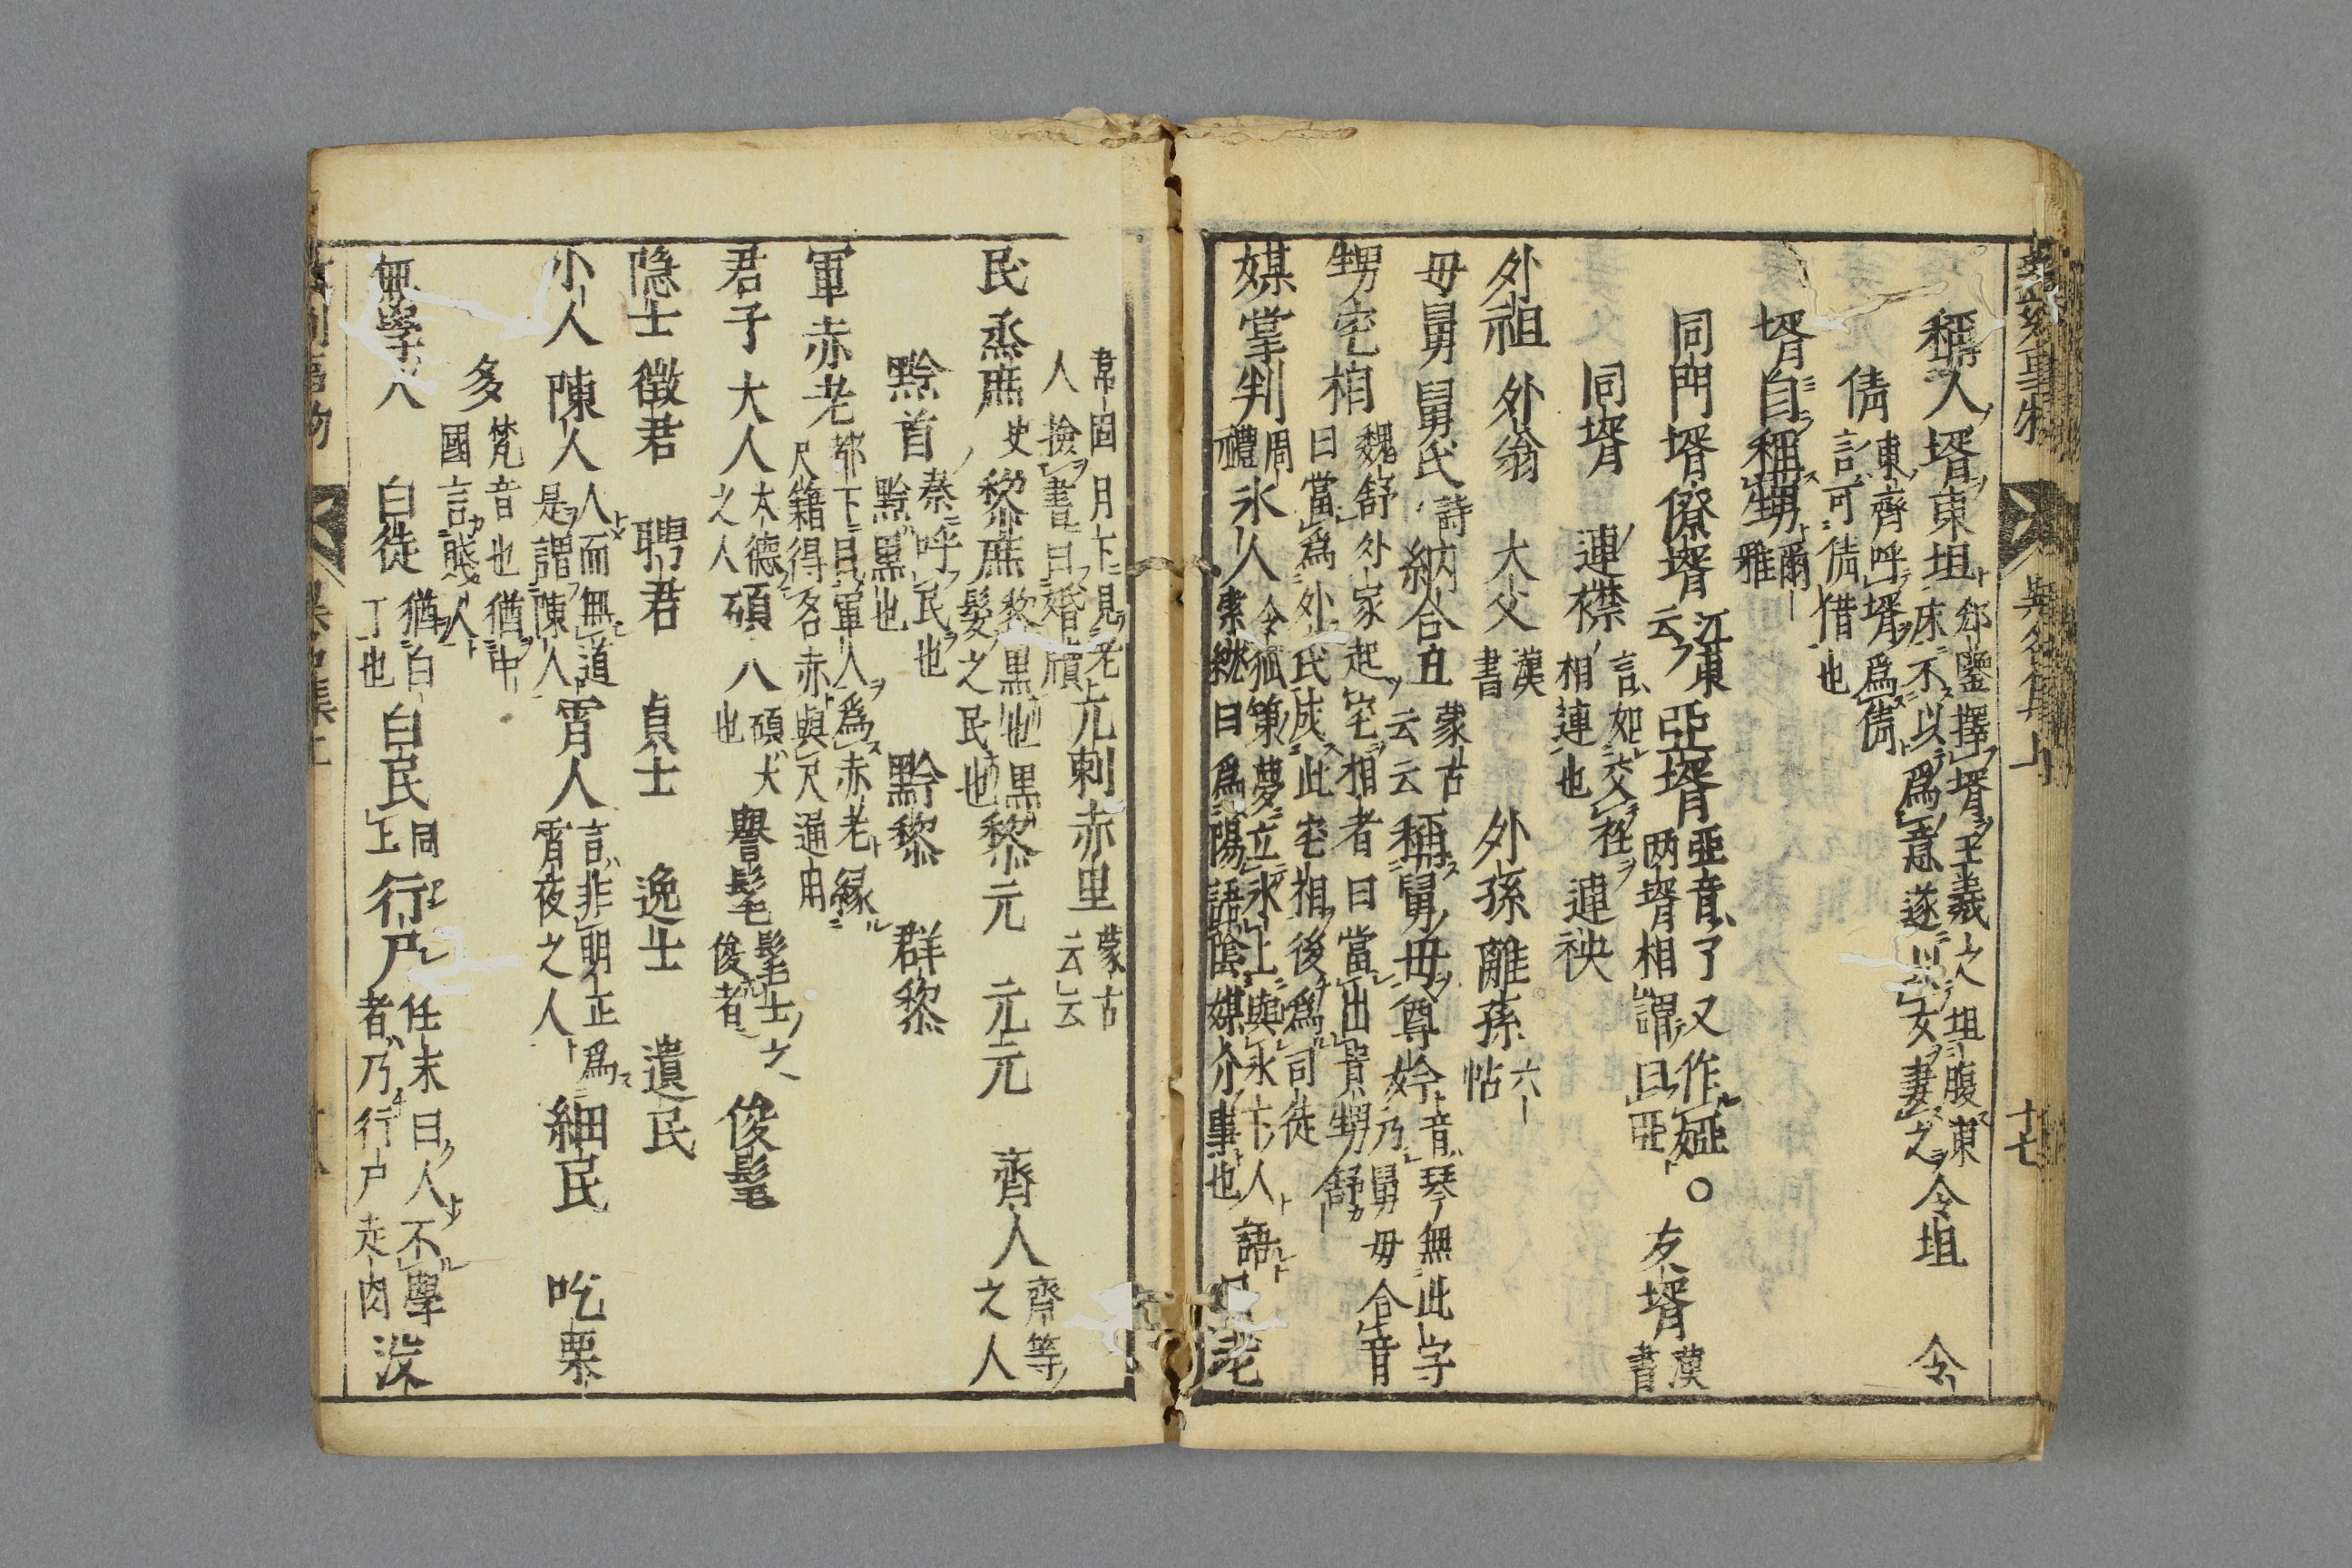 稱人壻東坦郄鑒擇壻王羲之坦腹東床不以爲意遂以女妻之令坦 令
倩東齊呼壻爲倩言可倩借也
壻自稱甥爾雅
同門壻僚壻江東云亞壻亞音了又作婭。两壻相謂曰亞友壻漢書
同壻 連襟言如交衽相連也連袂
外祖 外翁 大父漢書 外孫離孫六帖
母舅舅氏詩納合丑蒙古云云稱舅母尊妗音琴無此字乃舅母合音
甥宅相魏舒外家起宅相者曰當出貴甥舒曰當爲外氏成此宅相後爲司徒
媒掌判周禮氷人令狐策夢立氷上與氷下人語索紞曰爲陽語陰媒介事也 月老
韋固月下見老人撿書曰婚牘兀剌赤里蒙古云云
民烝庶史黎庶黎黒也黒髮之民也黎元 元元 齊人齊等之人
黔首秦呼民也黔黒也 黔黎 群黎
軍赤老都下目軍人爲赤老縁尺籍得名赤與尺通用
君子大人大德之人碩人碩大也譽髦髦士之俊者俊髦
隐士徵君 聘君 貞士 逸士 遺民
小人陳人人而無道是謂陳人宵人言非明正爲宵夜之人細民 吃栗
多梵音也猶中國言賤人
無學人 白徒猶白丁也白民同上行尸任末曰人不學者乃行尸走肉没
十七